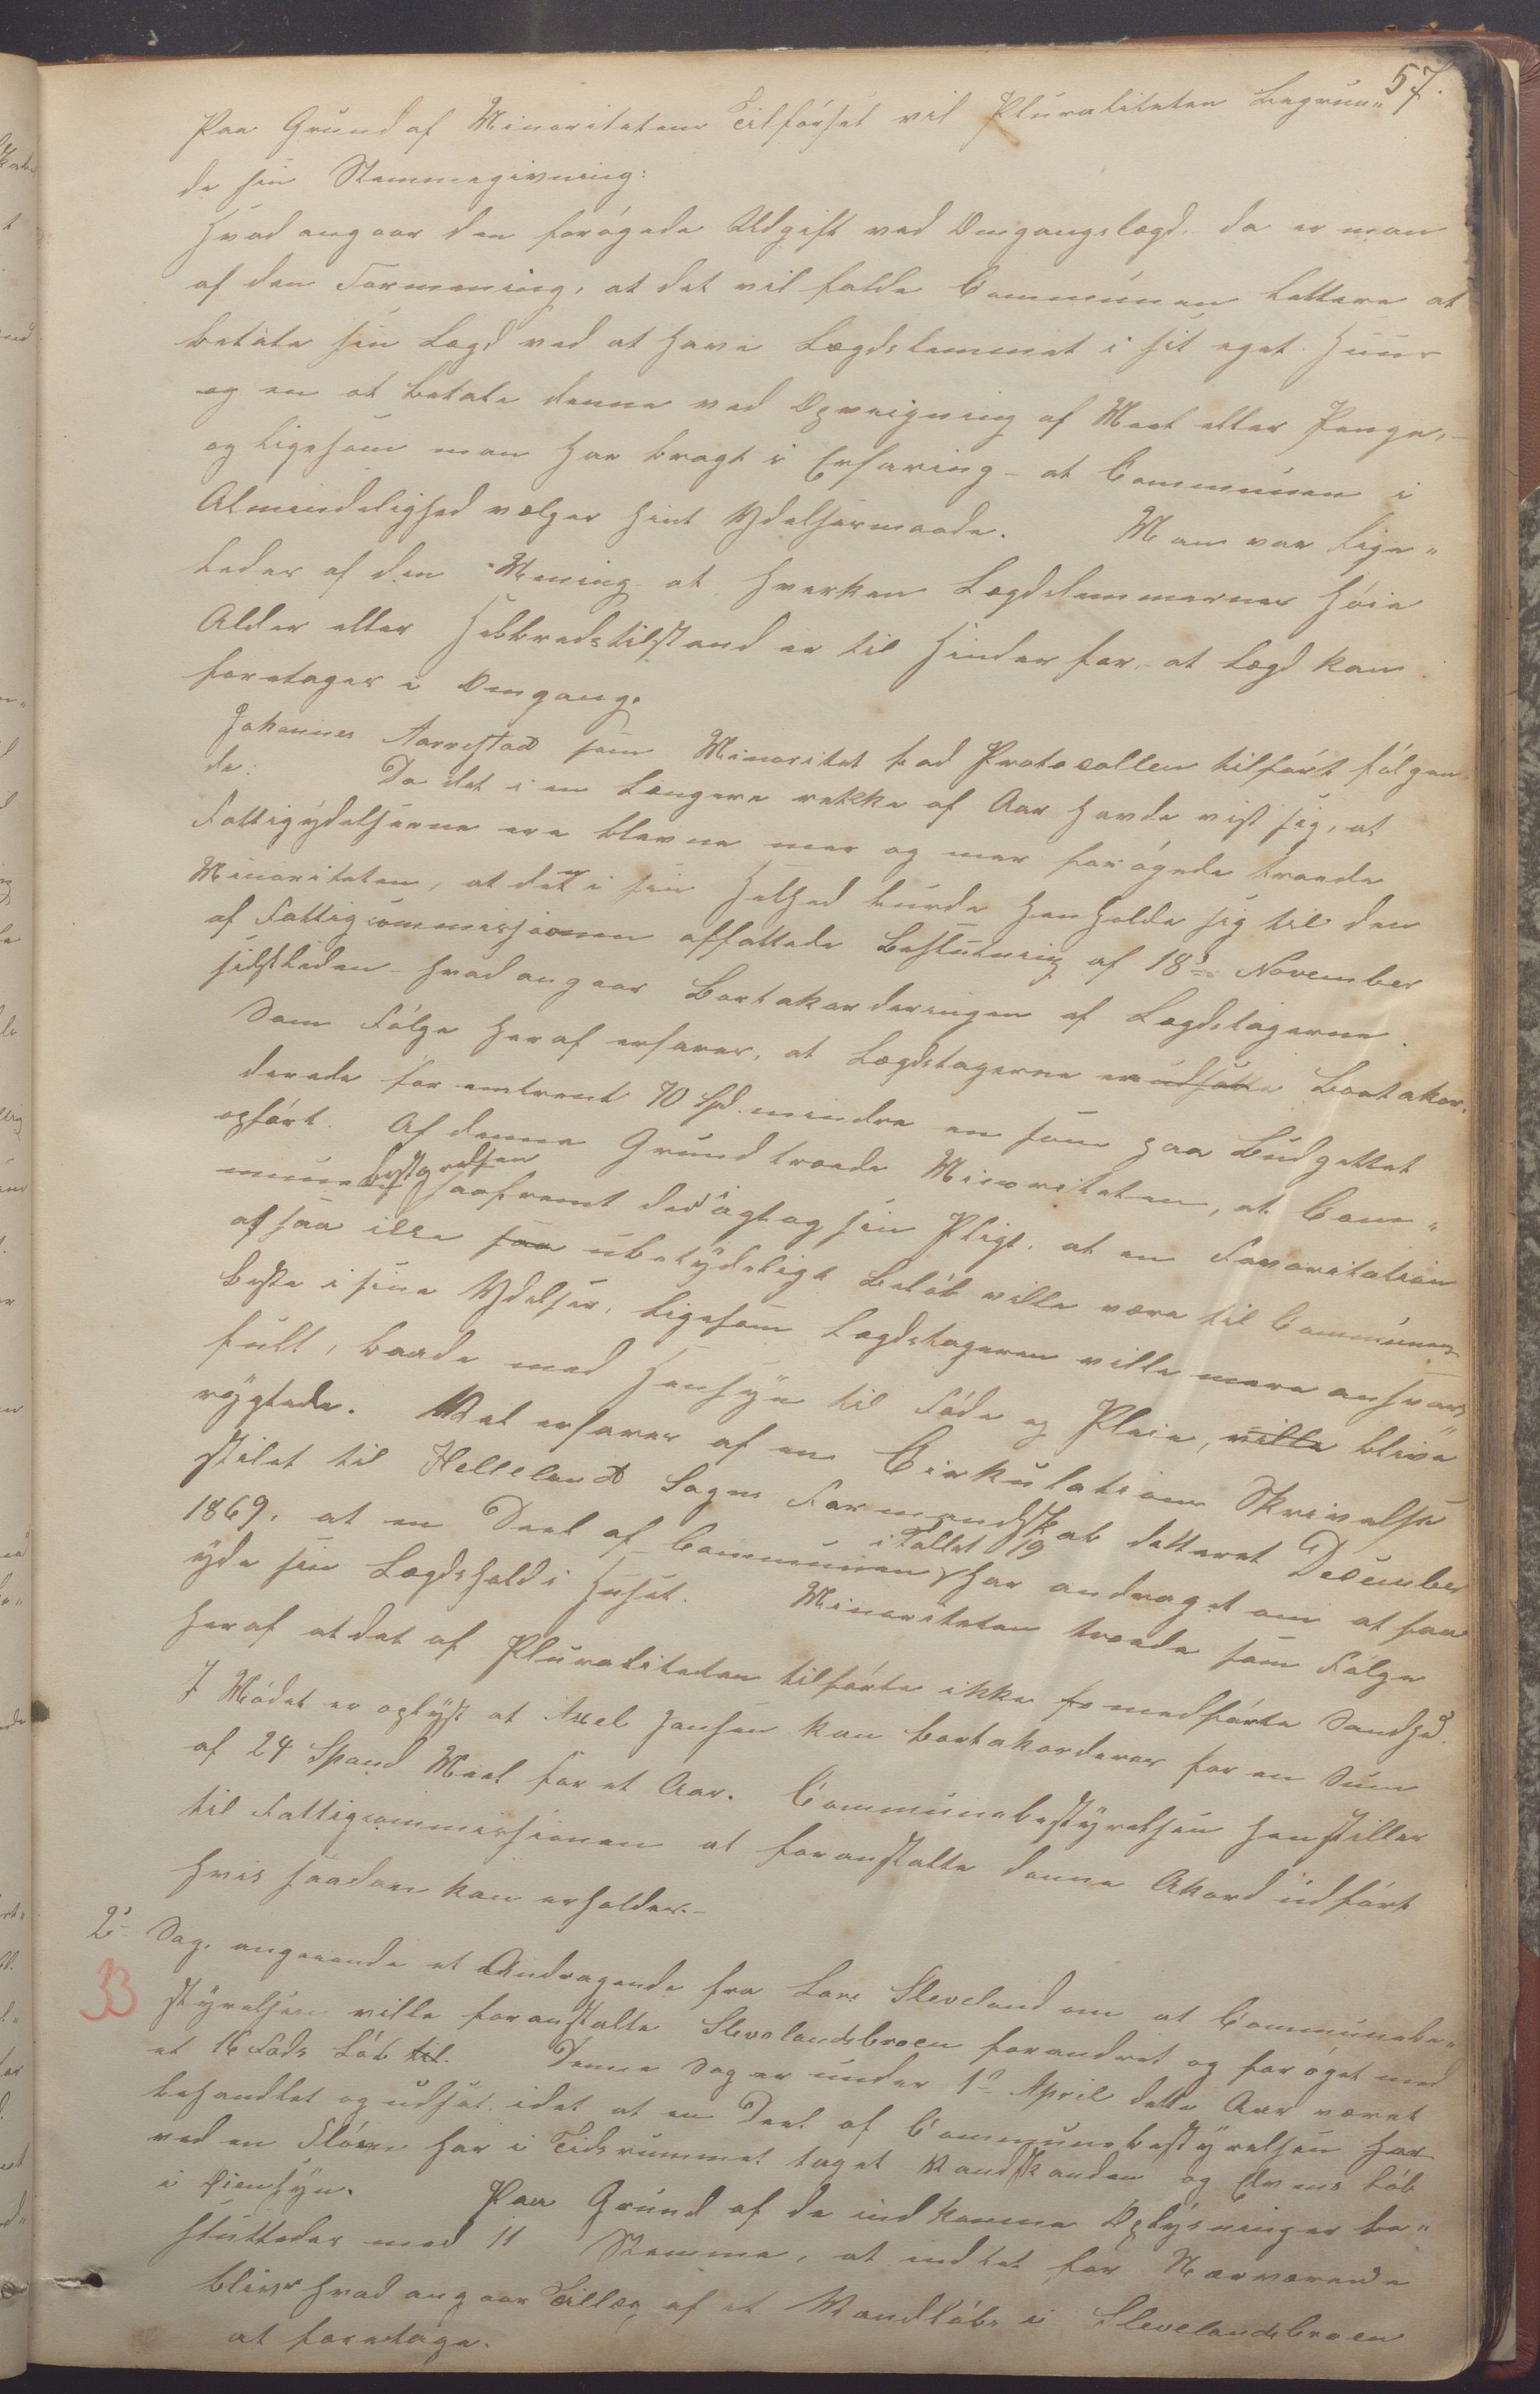 57.
Paa Grund af Minoritetens Tilførsel vil Pluraliteten begrun„
de sin Stemmegivning:
Hvad angaar den forøgede Udgift ved Omgangslægd, da er man
af den Formening, at det vil falde Communen lettere at
betale sin Lægd ved at have Lægdslemmet i sit eget Huus
og en at betale denne ved Opveigning af Meel eller Penge,–
og ligesom man har bragt i Erfaring – at Communen i
Almindelighed vælger hint Ydelsesmaade. Man var lige„
ledes af den Mening at hverken Lægdslemmernes høie
Alder eller Helbredstilstand er til Hinder for, at Lægd kan
foretages i Omgang.
Johannes Aarrestad som Minoritet bad Protocollen tilført følgen„
de: Da det i en længere rekke af Aar havde vist sig, at
Fattigydelserne ere blevne mer og mer forøgede troede
Minoriteten, at den i sin Helhed burde henholde sig til den
af Fattigcommissionen affattede Beslutning af 18de November
sidstleden – hvad angaar Bortakorderingen af Lægdslagerne.
Som Følge heraf erfares, at Lægdslagerne er udsatte Bortakor„
derede for omtrent 70 Spd. mindre en som paa Budgettet
opført. Af denne Grund troede Minoriteten, at Com„
munebestyrelsen saafremt det agtog sin Pligt, at en Favoritation
af saa ikke saa ubetydeligt Beløb ville være til Communens
beste i sine Ydelser, ligesom Lægdstageren ville mere ansvars„
fult, baade med Hensyn til Føde og Pleie, ville blive
røgtede. Vel erfares af en Cirkulations Skrivelse
stilet til Helleland Sogns Formandskab datteret December
1869, at en Deel af Communen i Tallet 19 har andraget om at faa
yde sin Lægdshold i Huset. Minoriteten troede som Følge
heraf at det af Pluraliteten tilførte ikke fo medførte Sandhed.
I Mødet er oplyst at Axel Hansen kan bortakorderes for en Sum
af 24 Spand Meel for et Aar. Communebestyrelsen henstiller
til Fattigcommissionen at foranstalte denne Akord udført
hvis saadan kan erholdes.–
2den Sag, angaaende et Andragende fra Lars Sleveland om at Communebe„
33 styrelsen ville foranstalte Slevelandsbroen forandret og forøget med
et 16 Fods Løb til. Denne Sag er under 1ste April dette Aar været
behandlet og udsat, idet at en Deel af Communebestyrelsen har
ved en Fløm har i Tidsrummet taget Vandstanden og Elvens Løb
i Øiensyn. Paa Grund af de indkomne Oplysninger be„
sluttedes med 11 Stemme, at indtet for Nærværende
bliver hvad angaar Tillæg af et Vandløbs i Slevelandsbroen
at foretage.